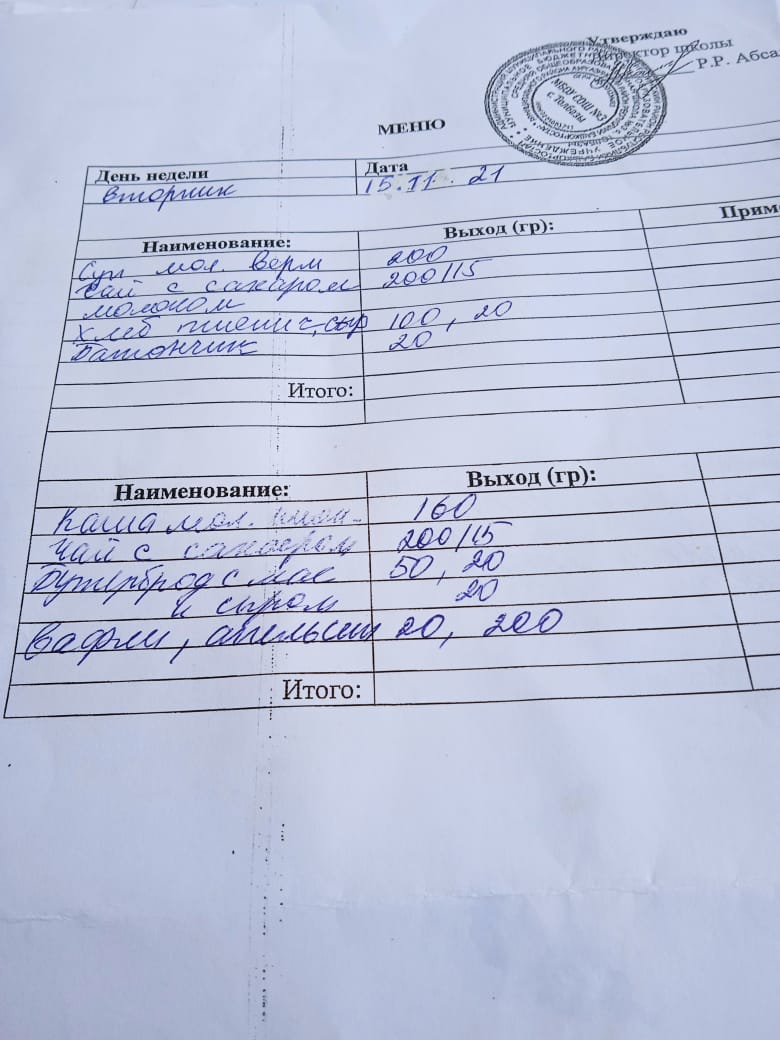 Утверждаю
Директор школы
Р.Р. Абса
МЕНЮ
День недели Дата
Вторник 15.11.21
Наименование: Выход (гр): Приме
Суп мол. верм 200
Чай с сахаром 200/15
молоком
Хлеб пшенич, сыр 100, 20
Батончик 20
Итого:
Наименование: Выход (гр):
Каша мол. 160
Чай с сахаром 200/15
Бутерброд с мас 50, 20
и сыром 20
Вафли, апельсин 20, 200
Итого: